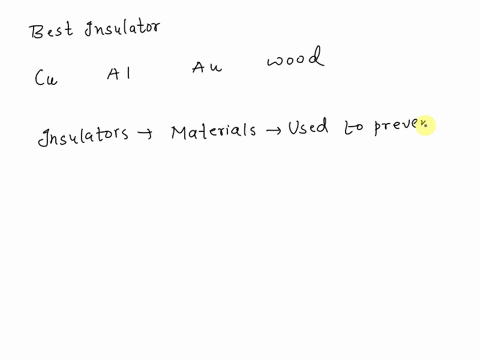 Best Insulator
Cu Al Au wood
Insulators → Materials → Used to preven